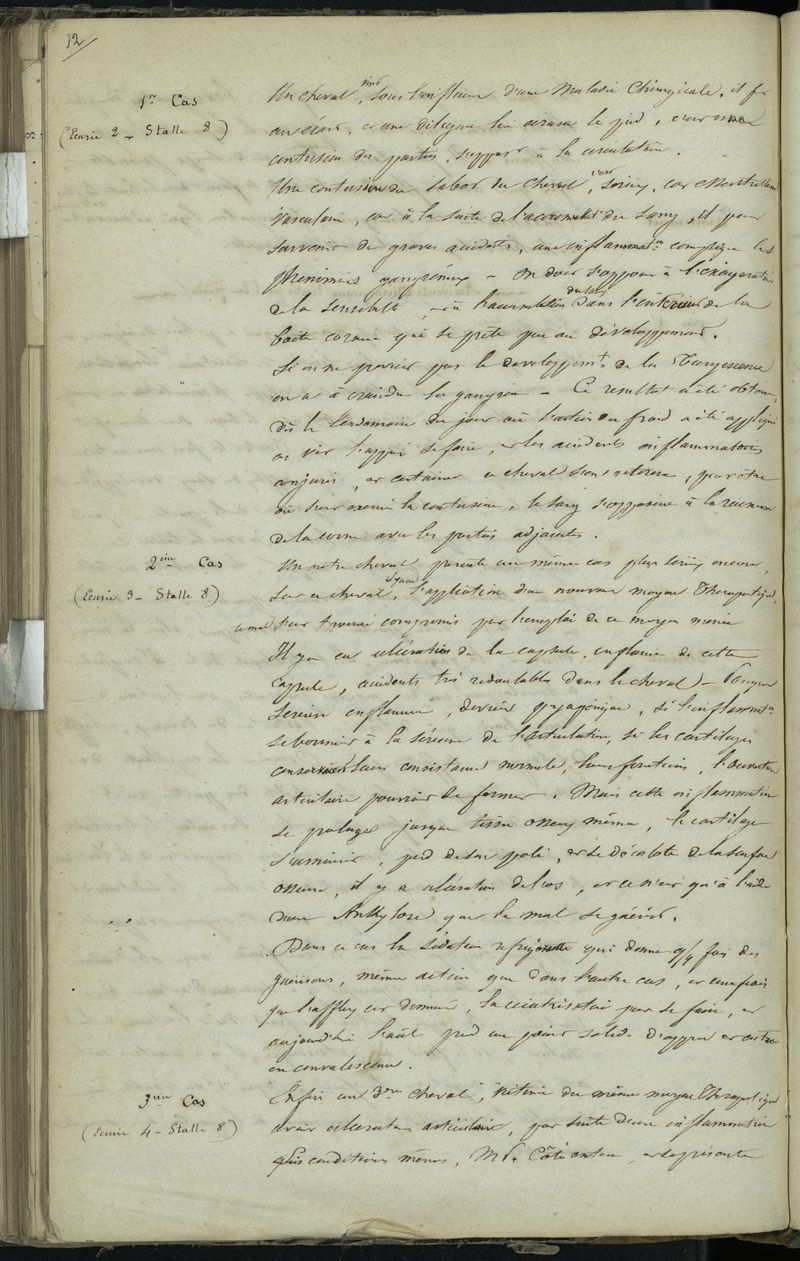 12
1er Cas
(Ecurie 2 - Stalle 8)
Un cheval vint sous l'influence d'une Maladie Chirurgicale, il
une diligence lui écrasa le pied,
contusion des parties, s'opposer à la circulation.
Une contusion du Sabot du Cheval, est sérieux, car
vasculaire, car à la suite de l'accumulat. du Sang, il peut
survenir de graves accidents, une inflammatn complique les
phénomènes gangréneux - on doit s'opposer à l'exagération
de la sensibilité, à l'accumulation du sang dans l'intérieur de la
boite cornée qui se prête peu au développement.
Si on ne prévient pas le developpemt de la Turgescence
on a à craindre la gangrène - Ce resultat a été obtenu,
dès le lendemain du jour où l'action du froid a été appliqué
on vit l'appui se faire, et les accidents inflammatoires
conjurés, et certains ce cheval s'en retirera, peut être
où s'est exercé la contusion, le sang s'opposera à la réunion
de la corne avec les parties adjacentes.
2eme Cas
(Ecurie 3 - Stalle 8)
Un autre cheval présente un même cas plus sérieux encore,
Sur ce cheval, l'application d'un nouveau moyen Thérapeutique,
le mal s'est trouvé compromis par l'emploi de ce moyen même
Il y a eu ulcération de la capsule, de cette
capsule, accidents très redoutables dans le cheval -
séreuse enflammée, devient pyogénique, si l'inflammatn
se bornait à la séreuse de l'articulation, si les cartilages
conservaient leur consistance normale, leurs fonctions, l'ouverture
articulaire pourrait se fermer. Mais cette inflammation
se prolonge jusqu'au tissu osseux même, le cartilage
s'amincit, perd de son poli, et se décolle de la surface
osseuse, il y a ulcération de l'os, et ce n'est qu'à l'aide
d'une Ankylose que le mal se guérit.
Dans ce cas la Sédation réfrigérante qui donne q/q fois des
guérisons, même action que dans l'autre cas, et une fois
que l'afflux est diminué, la cicatrisation peut se faire, et
aujourd'hui pied un point solide d'appui et entre
en convalescence.
3eme Cas
(Ecurie 4 - Stalle 8)
Enfin un 3eme cheval, victime du même moyen Thérapeutique
avait ulcération articulaire, par suite d'une inflammation
conditions mêmes, Mr.